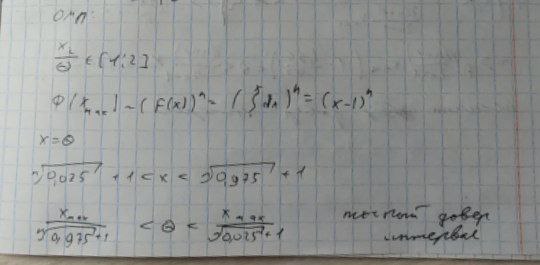 ОМП:
x_i/Θ ∈ [1;2]
Φ(x_max) - (F(x))^n = (∫_1^x dx)^n = (x-1)^n
x = Θ
ⁿ√0,025 + 1 < x < ⁿ√0,975 + 1
x_max/(ⁿ√0,975 + 1) < Θ < x_max/(ⁿ√0,025 + 1) точный довер
интервал